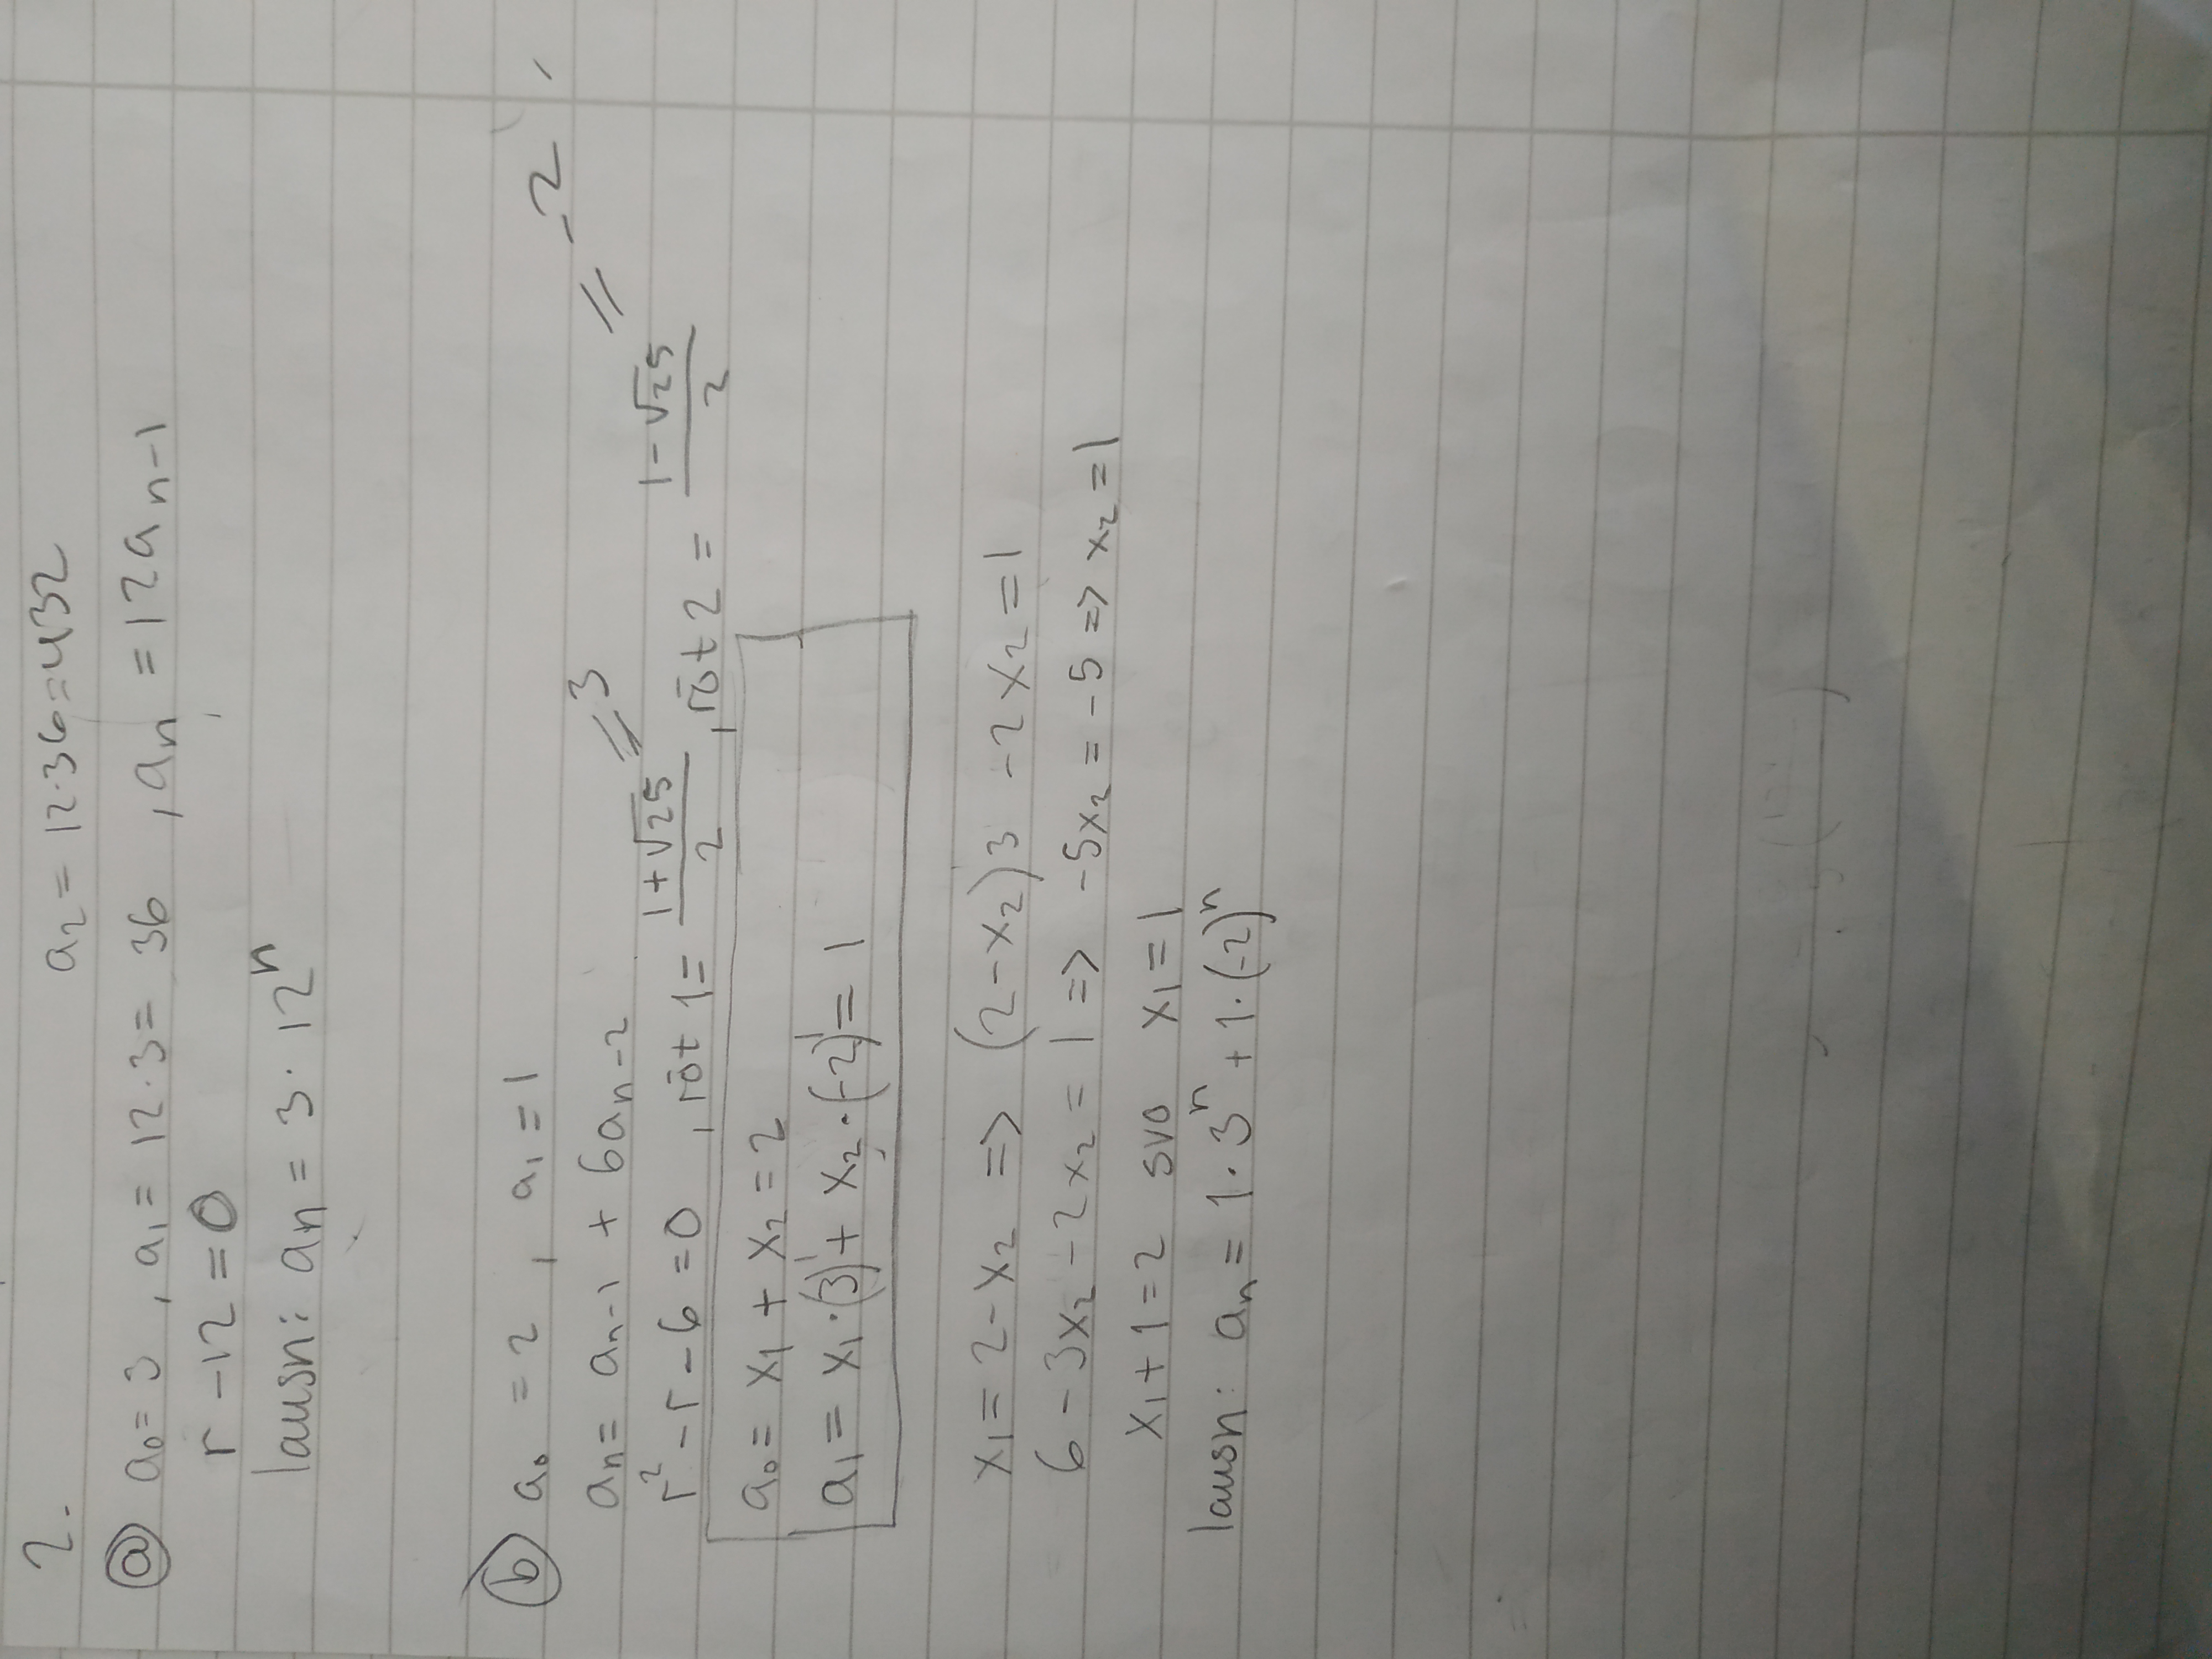 2.
a₂ = 12·36=432
ⓐ a₀= 3 , a₁= 12·3= 36 , aₙ = 12aₙ₋₁
r -12 = 0
lausn: aₙ = 3· 12ⁿ
ⓑ a₀ = 2 , a₁ = 1
aₙ= aₙ₋₁ + 6aₙ₋₂
r² - r - 6 = 0 , rót 1= (1+√25)/2 = 3 , rót 2 = (1-√25)/2 = -2
a₀= x₁ + x₂ = 2
a₁ = x₁·(3)¹ + x₂·(-2)¹ = 1
x₁= 2-x₂ => (2-x₂)3 -2x₂ =1
6 - 3x₂ -2x₂ = 1 => -5x₂ = -5 => x₂ =1
x₁+1=2 svo x₁=1
lausn: aₙ = 1·3ⁿ + 1·(-2)ⁿ